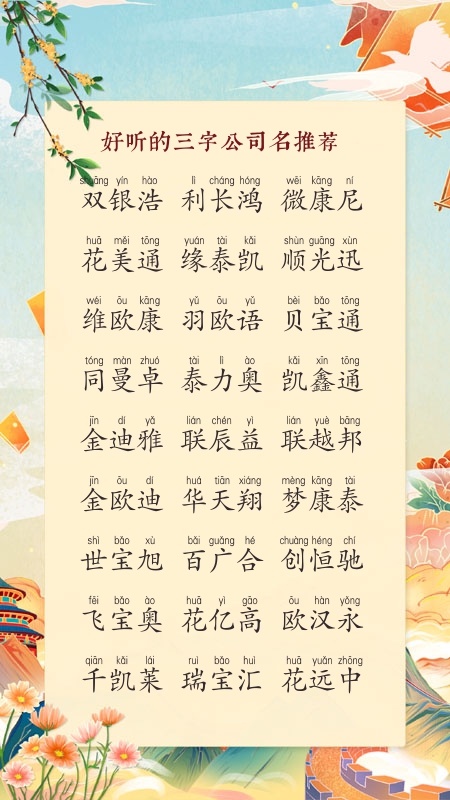 好听的三字公司名推荐
shuāng yín hào lì cháng hóng wēi kāng ní
双银浩 利长鸿 微康尼
huā měi tōng yuán tài kǎi shùn guāng xùn
花美通 缘泰凯 顺光迅
wéi ōu kāng yǔ ōu yǔ bèi bǎo tōng
维欧康 羽欧语 贝宝通
tóng màn zhuó tài lì ào kǎi xīn tōng
同曼卓 泰力奥 凯鑫通
jīn dí yǎ lián chén yì lián yuè bāng
金迪雅 联辰益 联越邦
jīn ōu dí huá tiān xiáng mèng kāng tài
金欧迪 华天翔 梦康泰
shì bǎo xù bǎi guǎng hé chuàng héng chí
世宝旭 百广合 创恒驰
fēi bǎo ào huā yì gāo ōu hàn yǒng
飞宝奥 花亿高 欧汉永
qiān kǎi lái ruì bǎo huì huā yuǎn zhōng
千凯莱 瑞宝汇 花远中